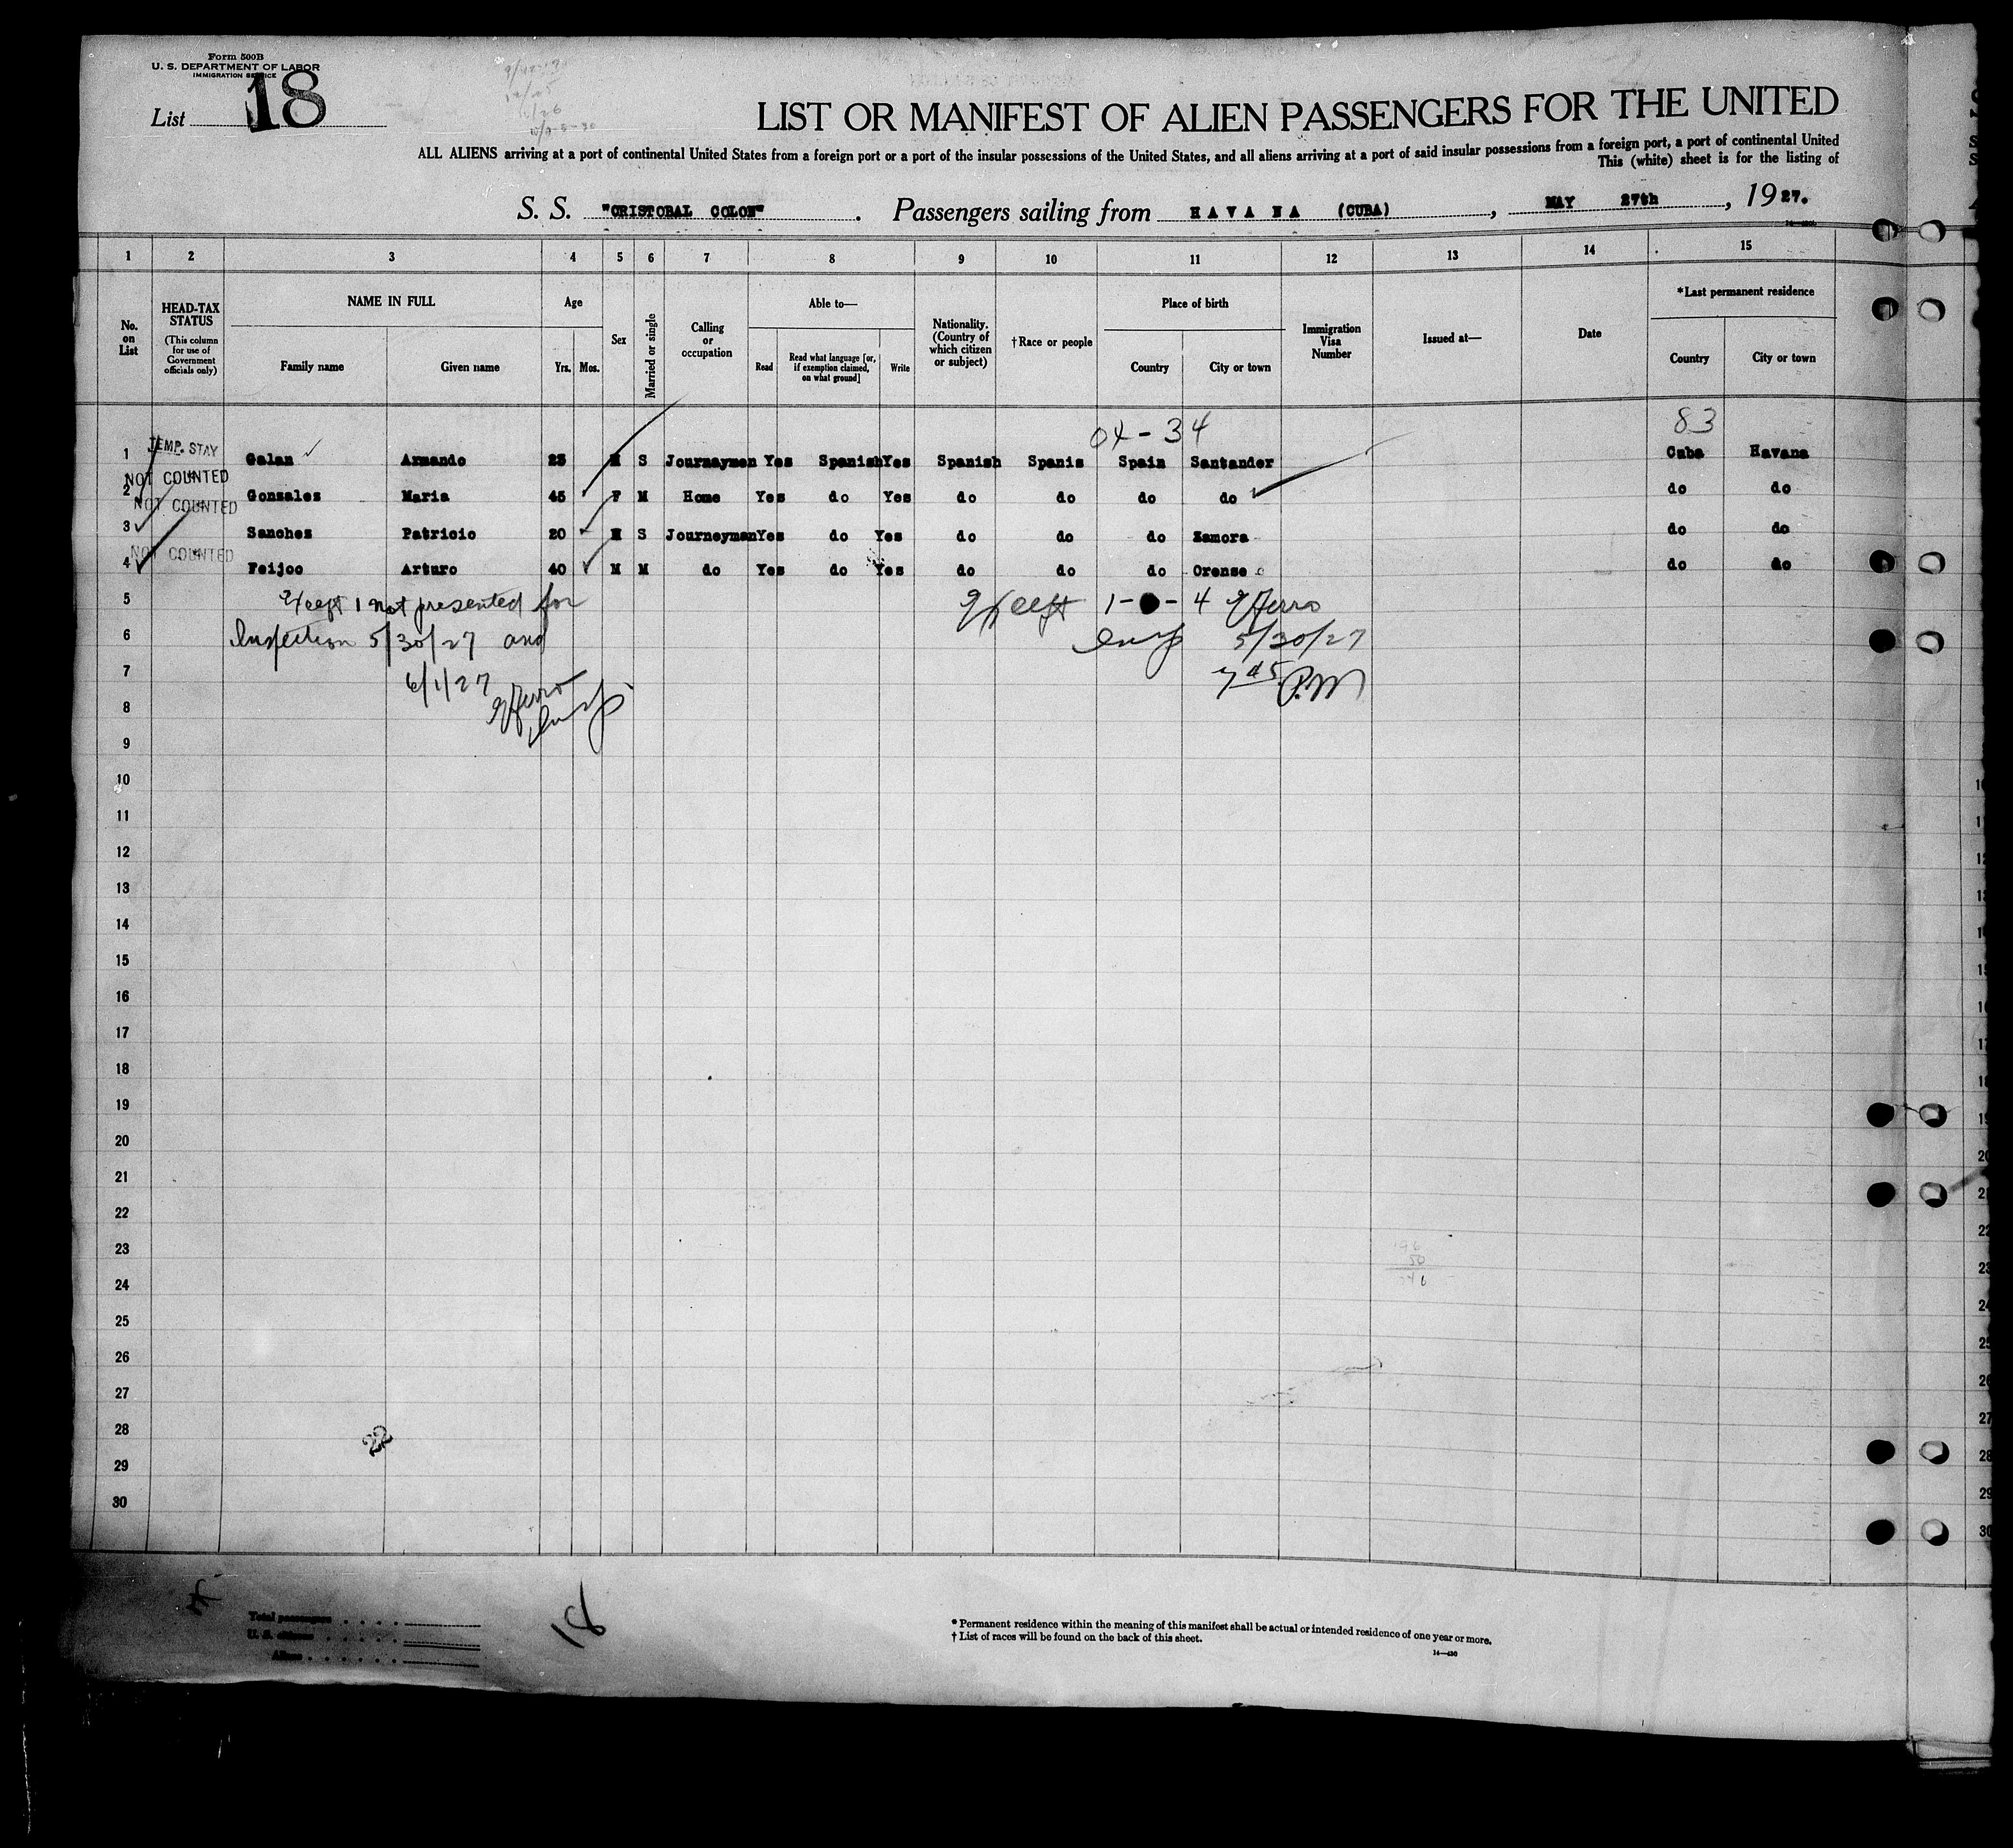 Form 500B
U. S. DEPARTMENT OF LABOR
IMMIGRATION SERVICE
List 18
LIST OR MANIFEST OF ALIEN PASSENGERS FOR THE UNITED
ALL ALIENS arriving at a port of continental United States from a foreign port or a port of the insular possessions of the United States, and all aliens arriving at a port of said insular possessions from a foreign port, a port of continental United
This (white) sheet is for the listing of
S. S. "CRISTOBAL COLON" . Passengers sailing from HAVANA (CUBA) , MAY 27th , 1927.
1 2 3 4 5 6 7 8 9 10 11 12 13 14 15
No. on List
HEAD-TAX STATUS
(This column for use of Government officials only)
NAME IN FULL
Family name Given name
Age
Yrs. Mos.
Sex
Married or single
Calling or occupation
Able to—
Read Read what language [or, if exemption claimed, on what ground] Write
Nationality. (Country of which citizen or subject)
†Race or people
Place of birth
Country City or town
Immigration Visa Number
Issued at—
Date
*Last permanent residence
Country City or town
04-34 83
1 TEMP. STAY Galan Armando 23 M S Journaymen Yes Spanish Yes Spanish Spanis Spain Santander Cuba Havana
NOT COUNTED
2 Gonzales Maria 45 F M Home Yes do Yes do do do do do do
NOT COUNTED
3 Sanches Patricio 20 M S Journeyman Yes do Yes do do do Zamora do do
NOT COUNTED
4 Feijoo Arturo 40 M M do Yes do Yes do do do Orense do do
5 Except 1 not presented for Except 1- - 4
6 Inspection 5/30/27 and Insp 5/30/27
7 6/1/27 P.M
8 Insp
9
10
11
12
13
14
15
16
17
18
19
20
21
22
23
24
25
26
27
28
29
30
22
Total passengers
U. S. citizens
Aliens
18
* Permanent residence within the meaning of this manifest shall be actual or intended residence of one year or more.
† List of races will be found on the back of this sheet.
14—430